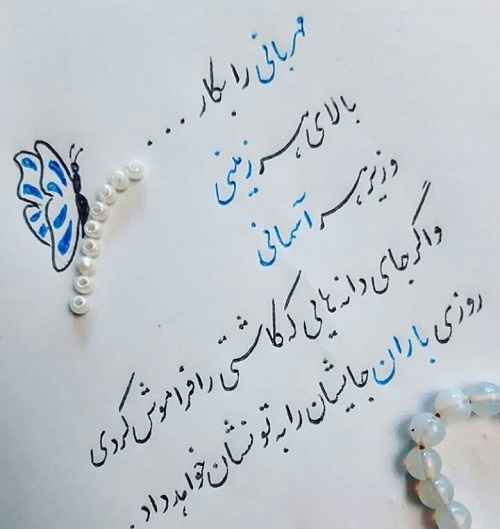 مهربانی را بکار ...
بالای هر زمینی
وزیر هر آسمانی
واگر جای دانه هایی که کاشتی را فراموش کردی
روزی باران جایشان را به تو نشان خواهد داد.